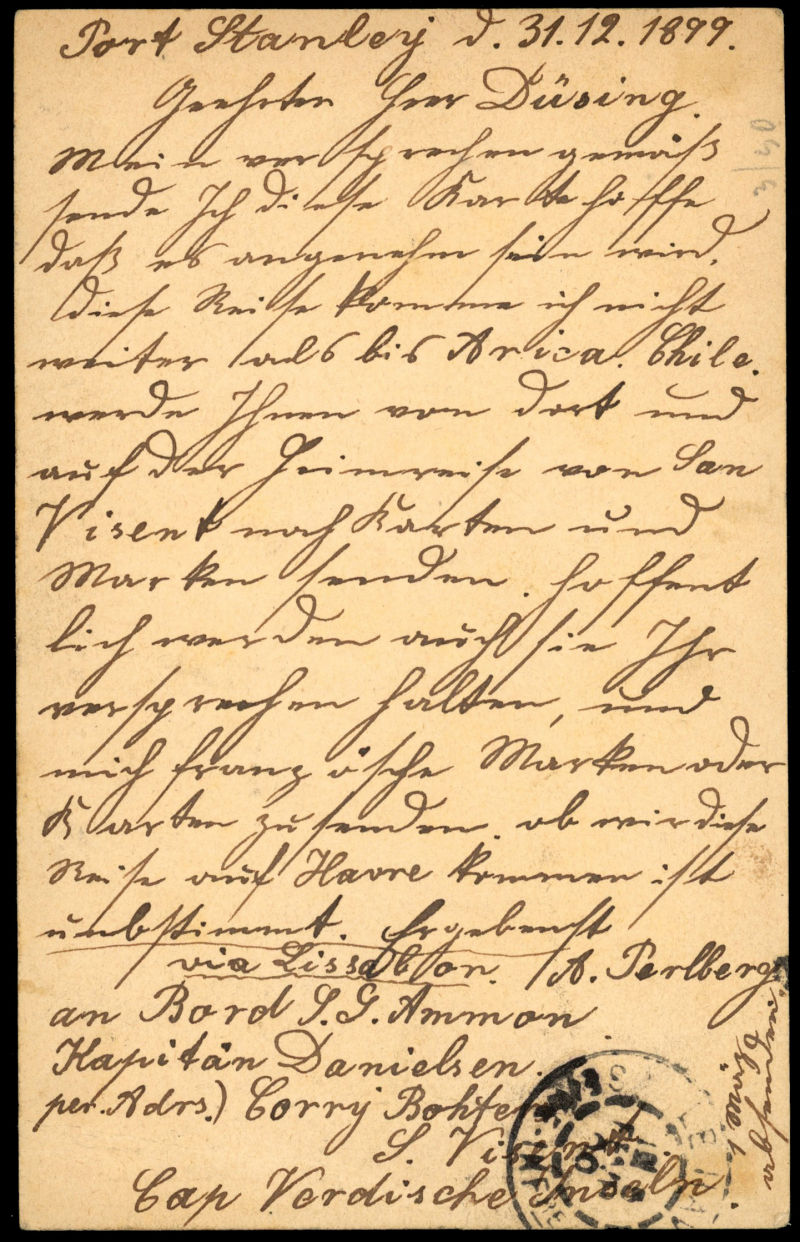 Port Stanley d. 31.12.1899.
Geehrter Herr Düsing.
Mein versprechen gemäß
sende Ich diese Karte hoffe
daß es angenehm sein wird.
diese Reise komme ich nicht
weiter als bis Arica. Chile.
werde Ihnen von dort und
auf der Heimreise von San
Visent noch Karten und
Marken senden. hoffent
lich werden auch sie Ihr
versprechen halten, und
mich französche Marken oder
Karten zu senden. ob wir diese
Reise auf Havre kommen ist
unbstimmt. Ergebenst
via Lissabon. A. Perlberg
an Bord S.G. Ammon
Kapitän Danielsen.
per. Adrs.) Corry
S.
Cap Verdische Inseln.
1 März
absenden